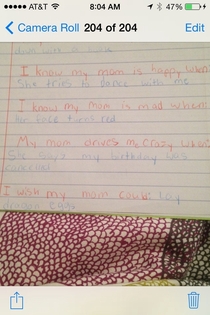 AT&T 8:04 AM 47%
Camera Roll 204 of 204 Edit
I know my mom is happy when
She tries to dance with me
I know my mom is mad when
her face turns red
My mom drives me crazy when
She says my birthday was
I wish my mom could lay
dragon eggs